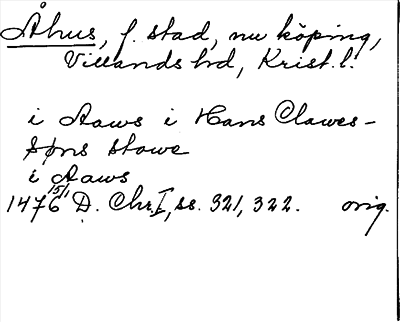 Åhus, f. stad, nu köping,
Villands hd, Krist. l.
i Aaws i Hans Clawes-
søns stowe
i Aaws
1476 15/1 D. Chr. I, ss. 321, 322. orig.